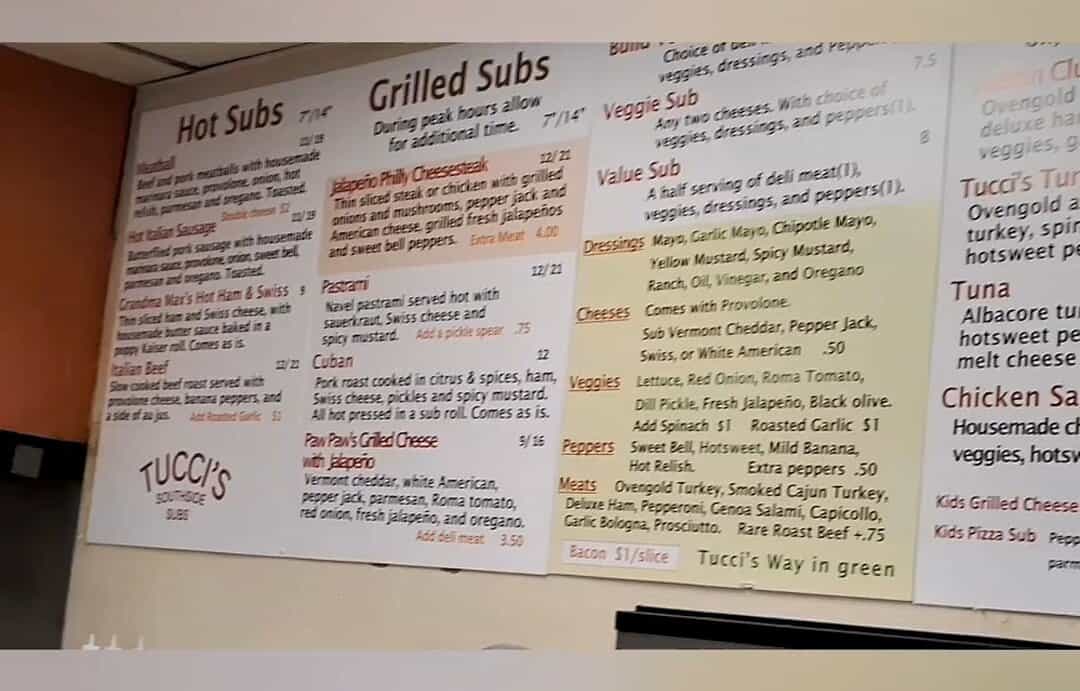 Hot Subs 7"/14"
Meatball
Beef and pork meatballs with housemade
marinara sauce, provolone, onion, hot
relish, parmesan and oregano. Toasted.
Double cheese $2
Hot Italian Sausage
Butterflied pork sausage with housemade
marinara sauce, provolone, onion, sweet bell,
parmesan and oregano. Toasted.
Grandma Max's Hot Ham & Swiss 9
Thin sliced ham and Swiss cheese, with
housemade butter sauce baked in a
poppy Kaiser roll. Comes as is.
Italian Beef 12/21
Slow cooked beef roast served with
provolone cheese, banana peppers, and
a side of au jus. Add Roasted Garlic $1
TUCCI'S
SOUTHSIDE
SUBS
Grilled Subs
During peak hours allow
for additional time. 7"/14"
Jalapeño Philly Cheesesteak 12/21
Thin sliced steak or chicken with grilled
onions and mushrooms, pepper jack and
American cheese, grilled fresh jalapeños
and sweet bell peppers. Extra Meat 4.00
Pastrami 12/21
Navel pastrami served hot with
sauerkraut, Swiss cheese and
spicy mustard. Add a pickle spear .75
Cuban 12
Pork roast cooked in citrus & spices, ham,
Swiss cheese, pickles and spicy mustard.
All hot pressed in a sub roll. Comes as is.
Paw Paw's Grilled Cheese 9/16
with Jalapeño
Vermont cheddar, white American,
pepper jack, parmesan, Roma tomato,
red onion, fresh jalapeño, and oregano.
Add deli meat 3.50
Choice of
veggies, dressings, and
Veggie Sub 7.5
Any two cheeses. With choice of
veggies, dressings, and peppers(1).
Value Sub 8
A half serving of deli meat(1),
veggies, dressings, and peppers(1).
Dressings Mayo, Garlic Mayo, Chipotle Mayo,
Yellow Mustard, Spicy Mustard,
Ranch, Oil, Vinegar, and Oregano
Cheeses Comes with Provolone.
Sub Vermont Cheddar, Pepper Jack,
Swiss, or White American .50
Veggies Lettuce, Red Onion, Roma Tomato,
Dill Pickle, Fresh Jalapeño, Black olive.
Add Spinach $1 Roasted Garlic $1
Peppers Sweet Bell, Hotsweet, Mild Banana,
Hot Relish. Extra peppers .50
Meats Ovengold Turkey, Smoked Cajun Turkey,
Deluxe Ham, Pepperoni, Genoa Salami, Capicollo,
Garlic Bologna, Prosciutto. Rare Roast Beef +.75
Bacon $1/slice Tucci's Way in green
Ovengold
deluxe
veggies,
Tucci's
Ovengold
turkey,
hotsweet
Tuna
Albacore
hotsweet
melt cheese
Chicken
Housemade
veggies,
Kids Grilled Cheese
Kids Pizza Sub